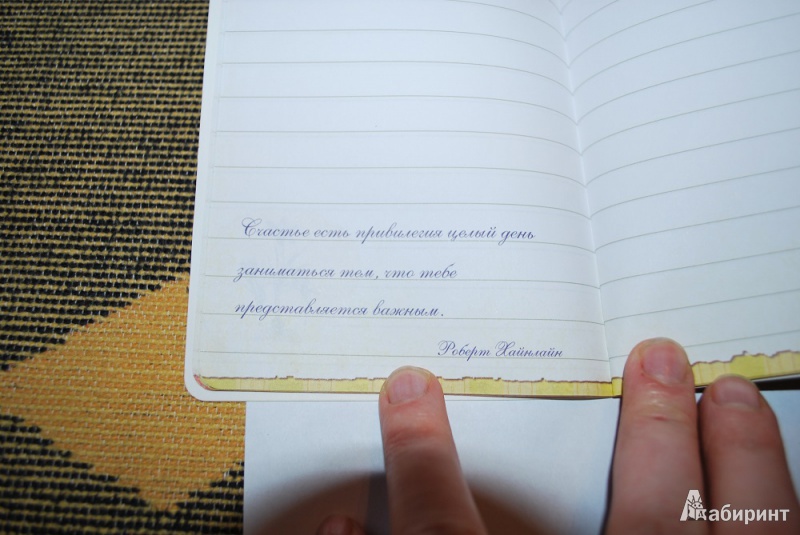 Счастье есть привилегия целый день
заниматься тем, что тебе
представляется важным.
Роберт Хайнлайн
Лабиринт